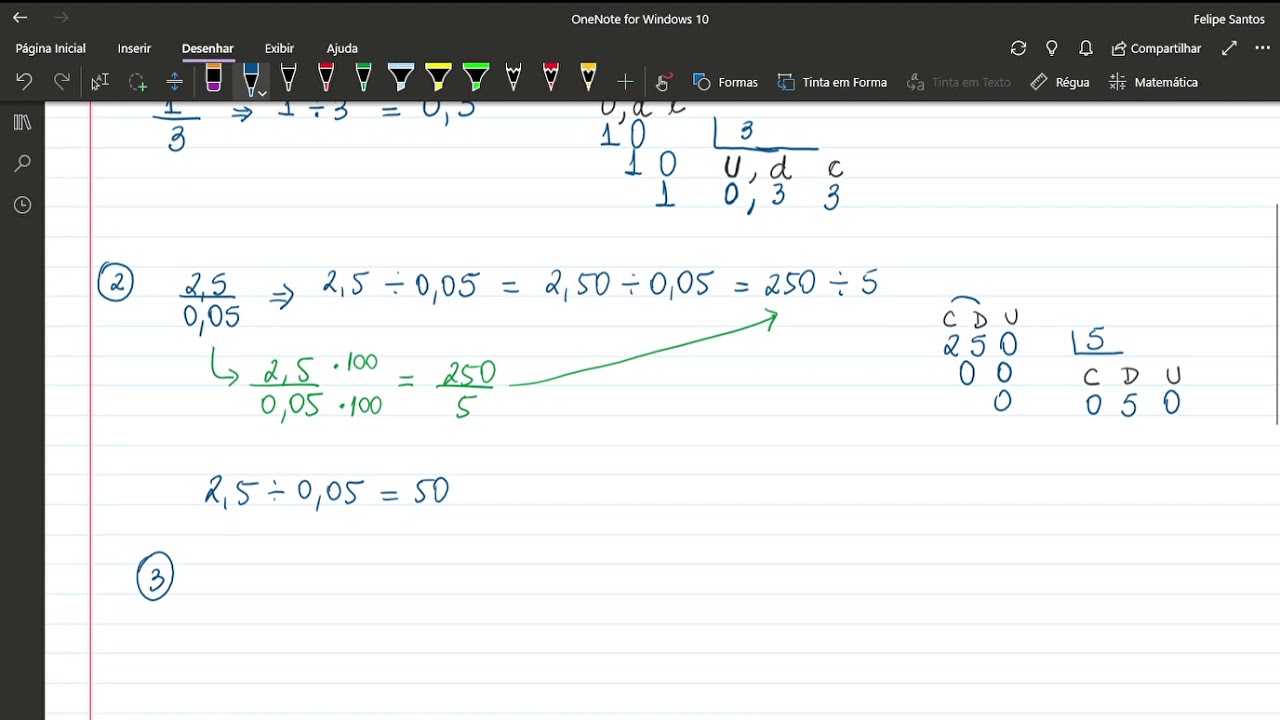 OneNote for Windows 10
Felipe Santos
Página Inicial Inserir Desenhar Exibir Ajuda Compartilhar
Formas Tinta em Forma Tinta em Texto Régua Matemática
1/3 ⇒ 1 ÷ 3 = 0,3
U, d c
10 3
10 U, d c
1 0, 3 3
2 2,5/0,05 ⇒ 2,5 ÷ 0,05 = 2,50 ÷ 0,05 = 250 ÷ 5
2,5 · 100 / 0,05 · 100 = 250/5
C D U
250 5
00 C D U
0 0 5 0
2,5 ÷ 0,05 = 50
3